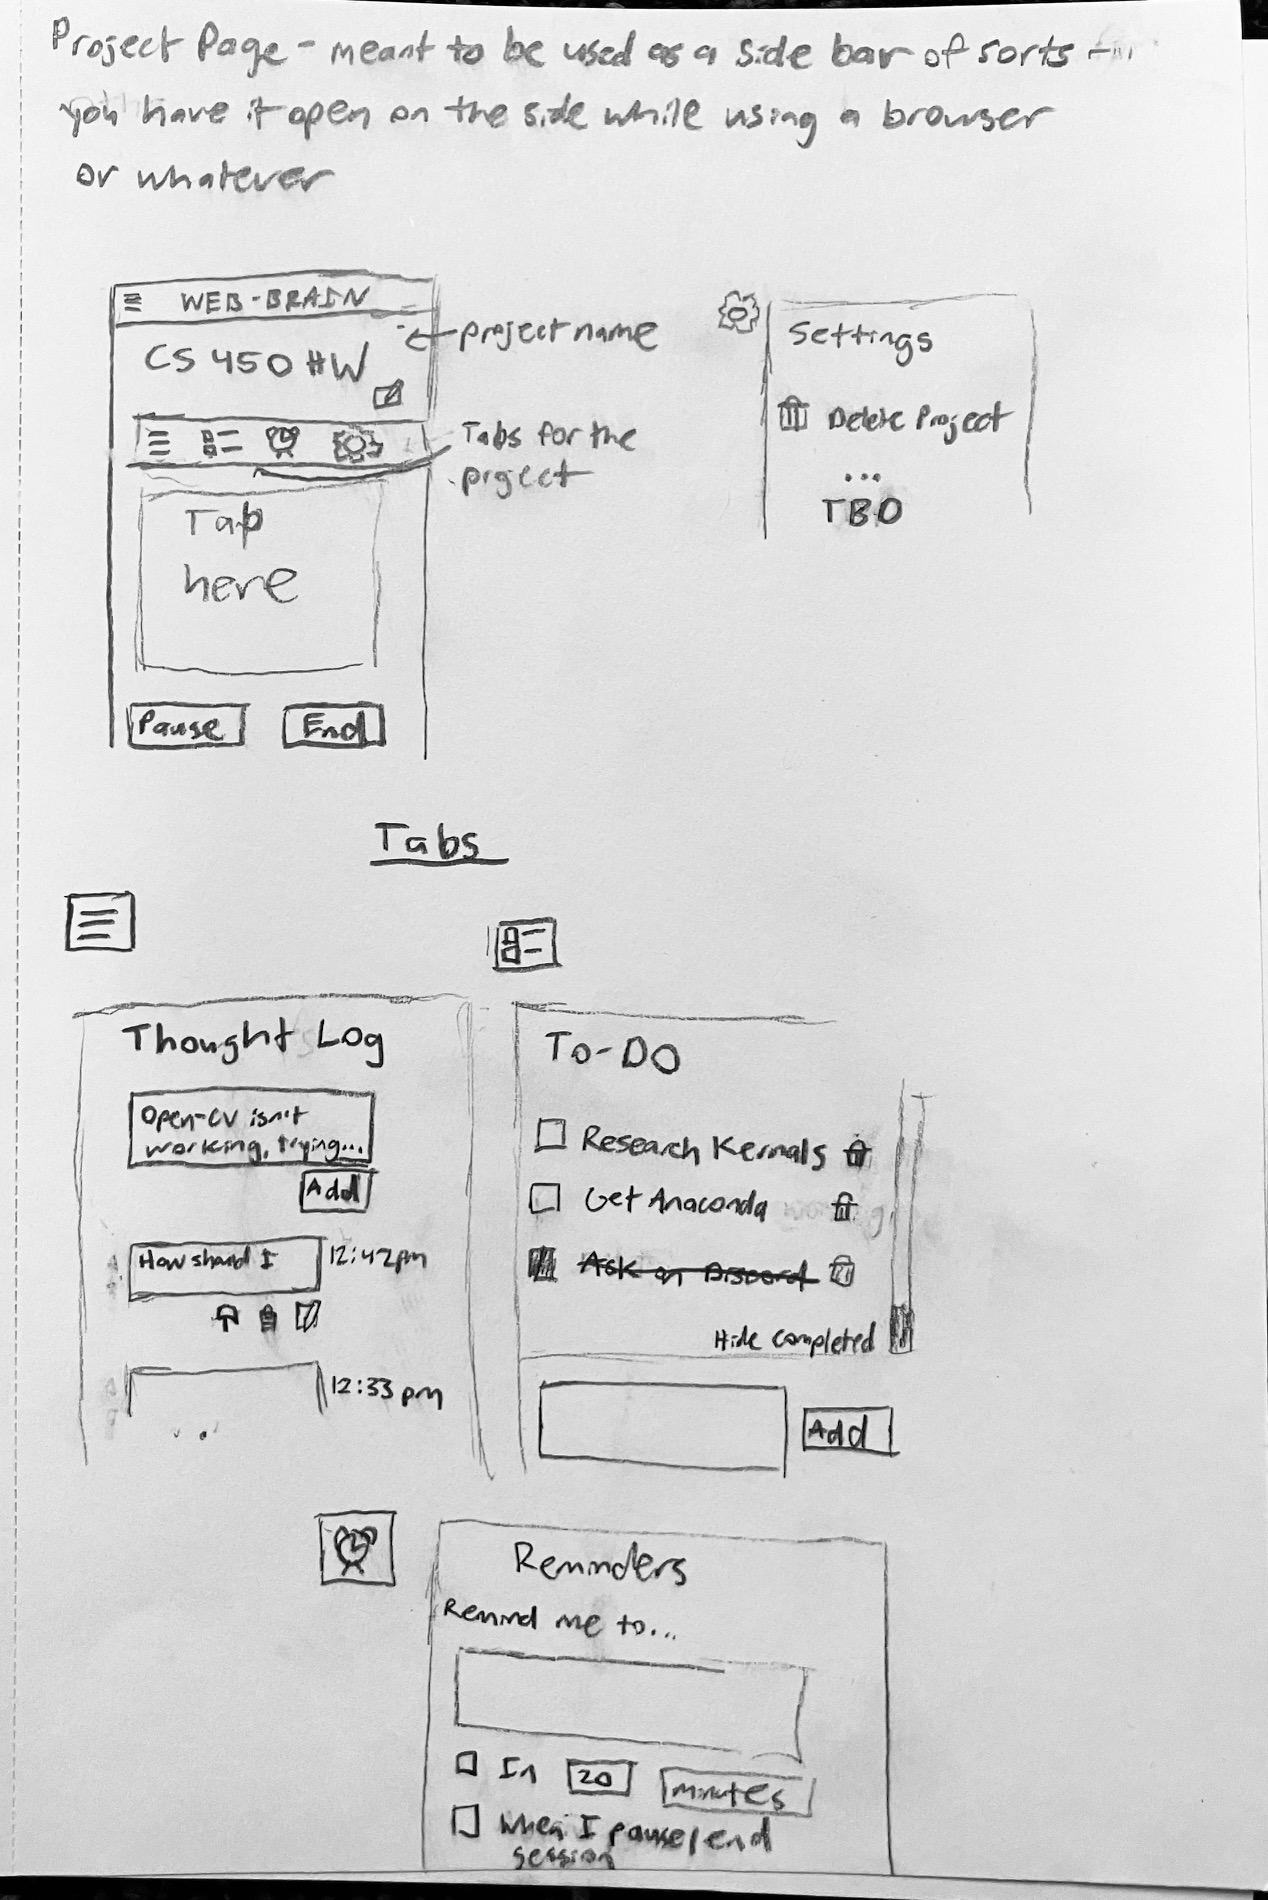 Project Page - meant to be used as a side bar of sorts -
you have it open on the side while using a browser
or whatever
WEB-BRAIN
CS 450 HW
project name
Tabs for the
project
Tab
here
Pause
End
Settings
Delete Project
...
TBD
Tabs
Thought Log
Open-CV isn't
working, trying...
Add
How should I
12:42pm
12:33 pm
To-DO
Research Kernals
Get Anaconda
Ask on Discord
Hide completed
Add
Reminders
Remind me to...
In 20 minutes
When I pause/end
session